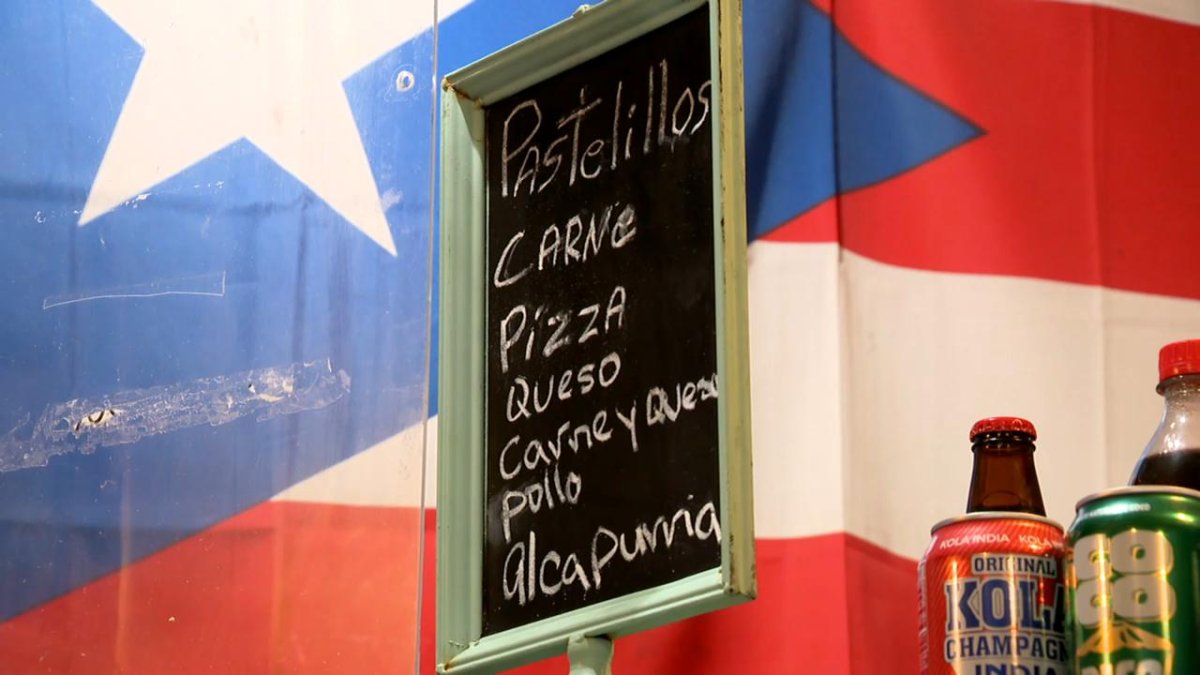 Pastelillos
CARNe
PizzA
Queso
Carne y Queso
pollo
alcapurria
KOLA INDIA
ORIGINAL
KOLA
CHAMPAGN
INDIA
COCO
RICO